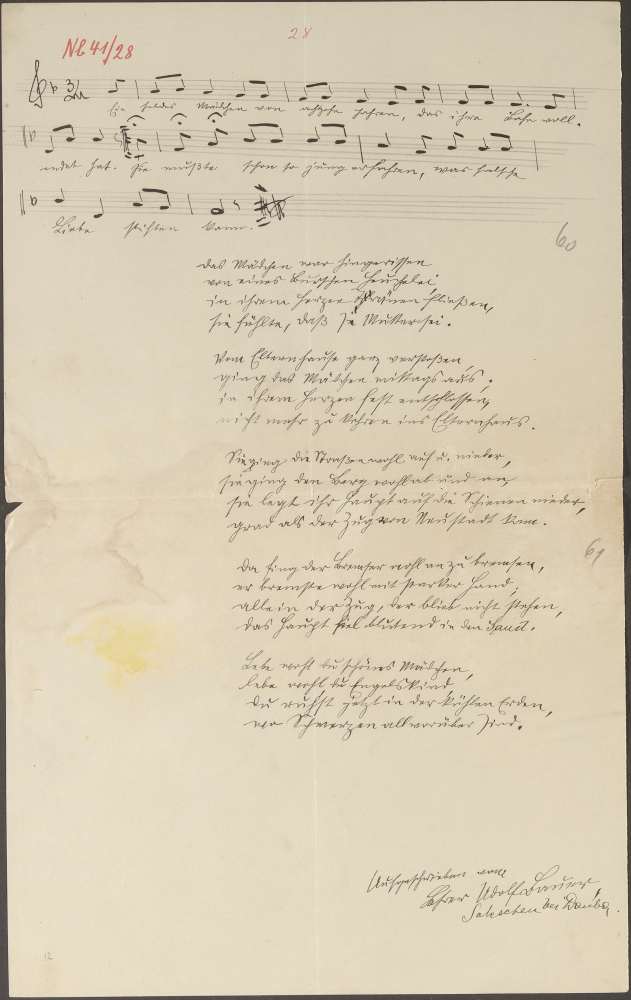 28
Nb 41/28
Ein holdes Mädchen von achzehn Jahren, das ihre Lehr voll-
endet hat. Sie mußte schon so jung erfahren, was falsche
Liebe stiften kann.
60
Das Mädchen war hingerissen
von eines Burschen Heuchelei,
in ihrem Herzen Thränen fließen,
sie fühlte, daß sie Mutter sei.
Vom Elternhause ganz verstoßen,
ging das Mädchen mittags aus;
in ihrem Herzen fest entschlossen,
nicht mehr zu kehren ins Elternhaus.
Sie ging die Straßen wohl auf u. nieder,
sie ging den Berg wohl ab und an
sie legt ihr Haupt auf die Schienen nieder,
grad als der Zug von Neustadt kam.
61
Da fing der Bremser wohl an zu bremsen,
er bremste wohl mit starker Hand,
allein der Zug, der blieb nicht stehen,
das Haupt fiel blutend in den Sand.
Lebe wohl du schönes Mädchen,
lebe wohl du Engelskind,
du ruhst jetzt in der kühlen Erden,
wo Schmerzen all vorüber sind.
Aufgeschrieben vom
Lehrer Adolf Bauer,
bei Dauba.
12